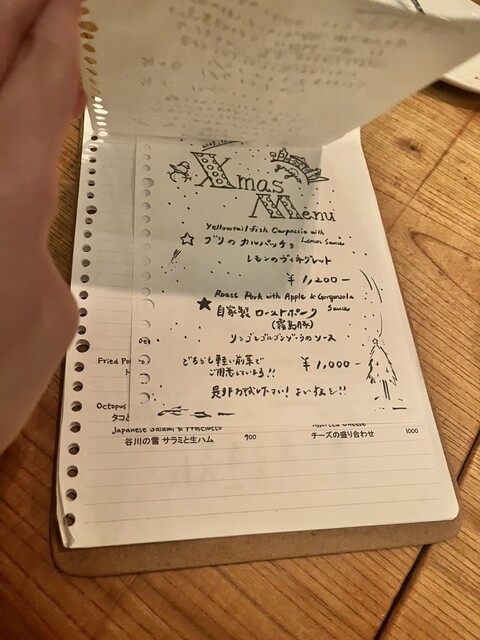 Xmas
Menu
Yellowtail-fish Carpaccio with
Lemon Sauce
☆ ブリのカルパッチョ
レモンのヴィネグレット
¥ 1,200-
Roast Pork with Apple & Gorgonzola
Sauce
★ 自家製 ローストポーク
(霧島豚)
リンゴとゴルゴンゾーラのソース
¥ 1,000-
どちらも軽い前菜で
ご用意しています!!
是非お試し下さい! よい夜を!!
Fried Po
Octopus
タコと
Japanese Salami & Prosciutto
谷川の雪 サラミと生ハム 900
チーズの盛り合わせ 1000